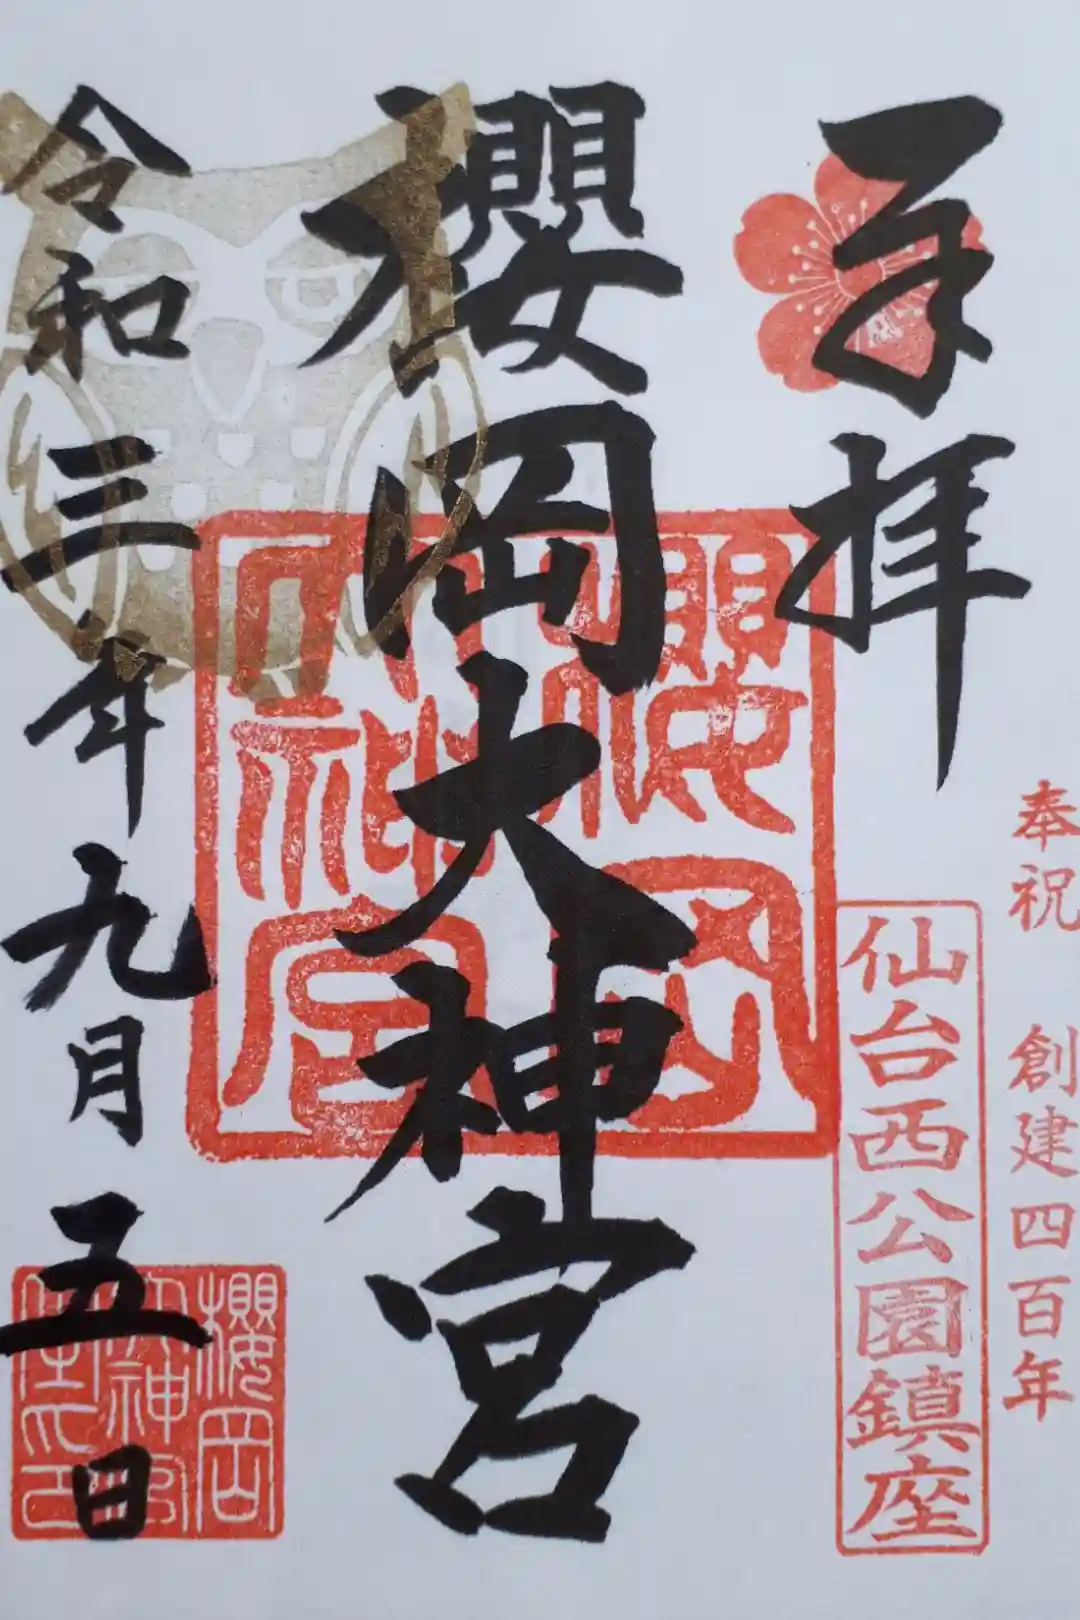 奉祝 創建四百年
奉拝
仙台西公園鎮座
櫻岡大神宮
櫻岡
大神宮
令和三年九月五日
櫻岡